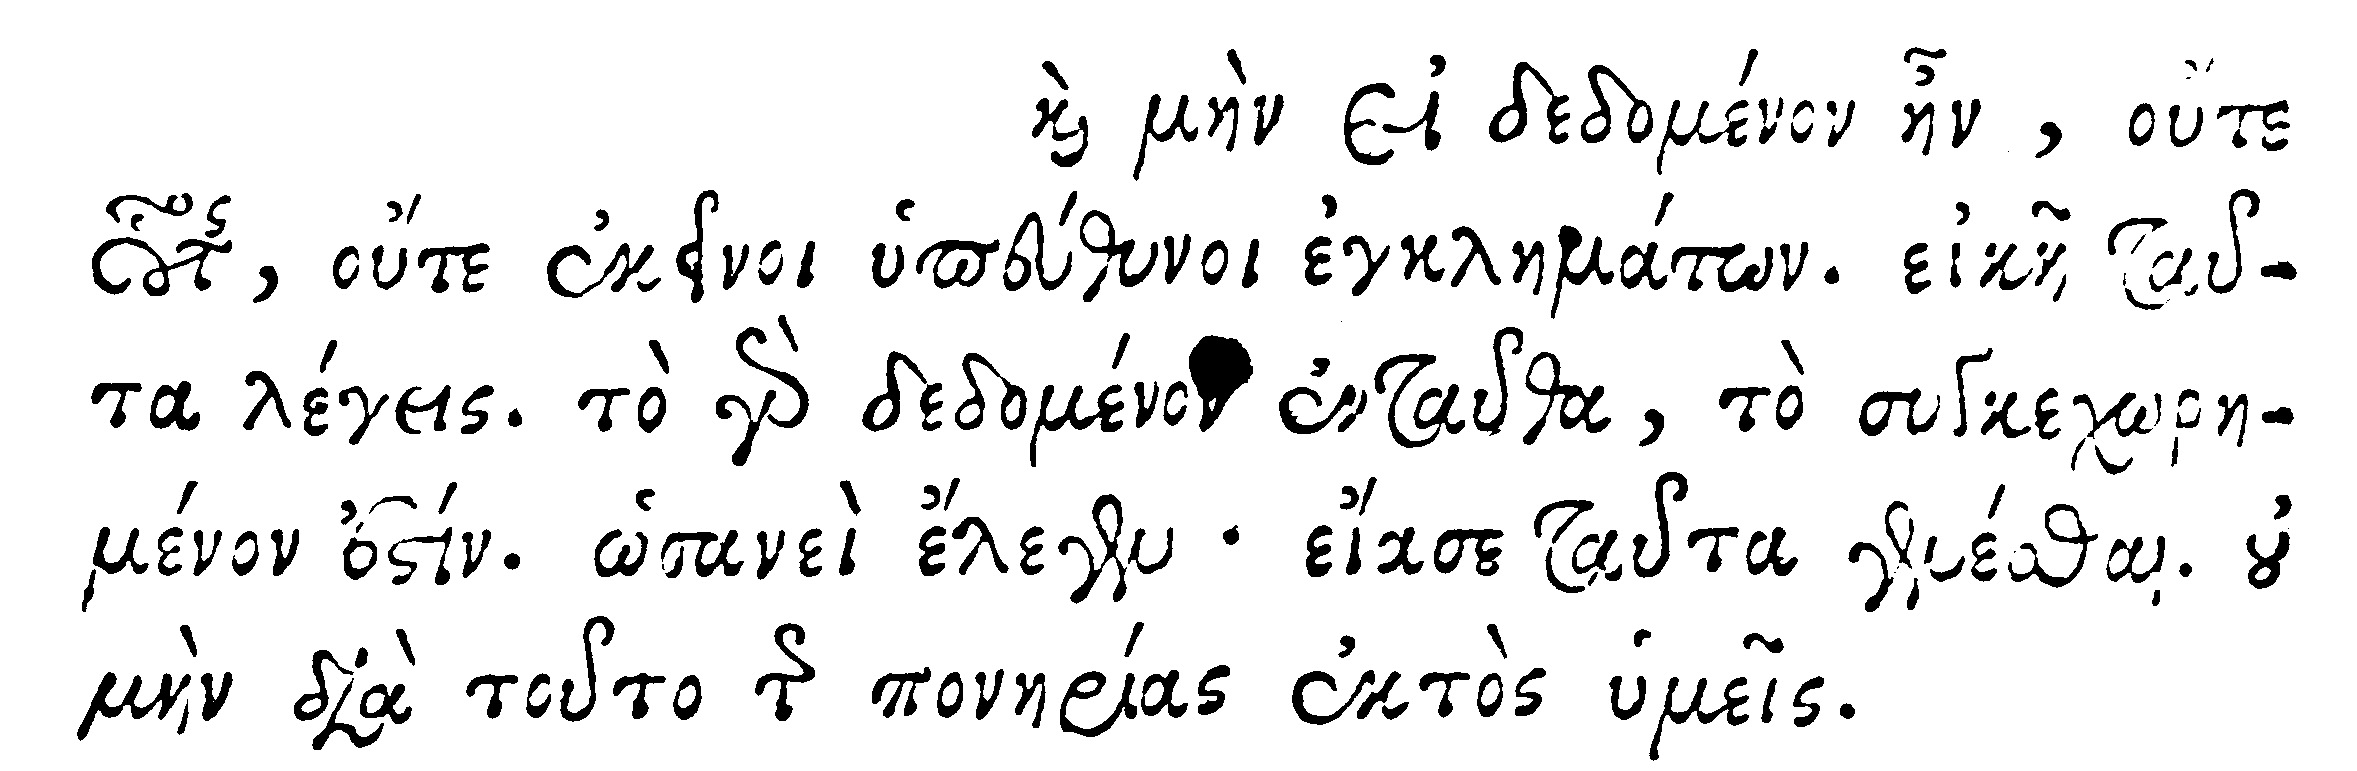 καὶ μὴν εἰ δεδομένον ἦν, οὔτε
οὗτος, οὔτε ἐκεῖνοι ὑπεύθυνοι ἐγκλημάτων. εἰκῆ ταῦ-
τα λέγεις. τὸ γὰρ δεδομένον ἐνταῦθα, τὸ συγκεχωρη-
μένον ἐστίν. ὡσανεὶ ἔλεγεν · εἴασε ταῦτα γενέσθαι. οὐ
μὴν διὰ τοῦτο τῆς πονηρίας ἐκτὸς ὑμεῖς.